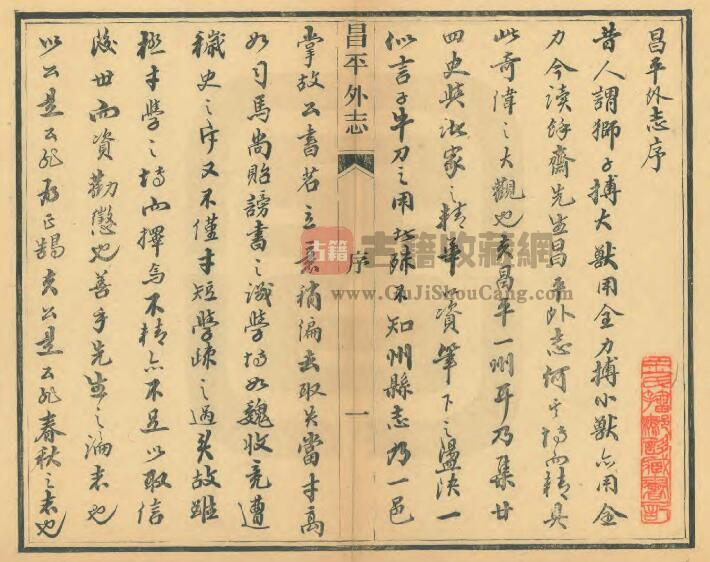 昌平外志序
昔人謂獅子搏大獸用全力搏小獸亦用全
力今讀餘齋先生昌平外志何其博而精具
此奇偉之大觀也夫昌平一州耳乃集廿
四史與浙家之精華以資筆下之盪決一
似言子牛刀之用北殊不知州縣志乃一邑
昌平外志
序
一
掌故公書若立意稍偏去取失當才高
如司馬尚貽謗書之譏學博如魏收竟遭
穢史之斥又不僅才短學疎之過矣故雖
極才學之博而擇焉不精亦不足以取信
後世而資勸懲也善乎先生之論志也
以公是公非為正鵠夫公是公非春秋之志也
古籍
古籍收藏網
www.GuJiShouCang.com